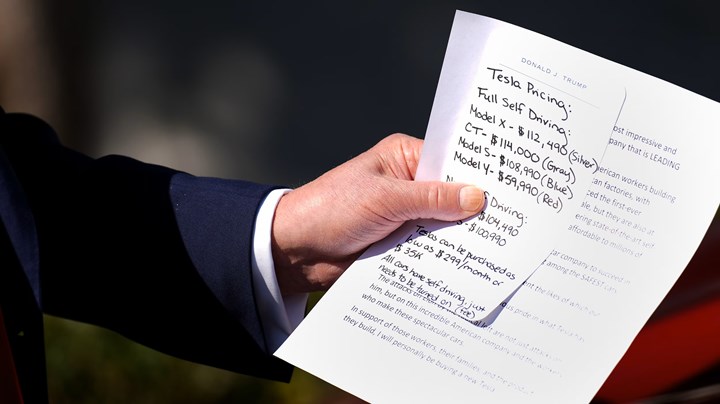 DONALD J. TRUMP
Tesla Pricing:
Full Self Driving:
Model X - $112,490 (Silver)
CT - $114,000 (Gray)
Model S - $108,990 (Blue)
Model Y - $59,990 (Red)
Driving:
$104,490
$100,990
Teslas can be purchased as
low as $299/month or
$35K
All cars have self driving, just
needs to be turned on
ost impressive and
pany that is LEADING
merican workers building
can factories, with
the first-ever
but they are also at
ering state of the art self
affordable to millions of
car company to succeed in
among the SAFEST cars
the likes of which our
pride in what Tesla has
The attacks on are not just attacks on
him, but on this incredible American company and the
who make these spectacular cars.
In support of those workers, their families, and the
they build, I will personally be buying a new Tesla